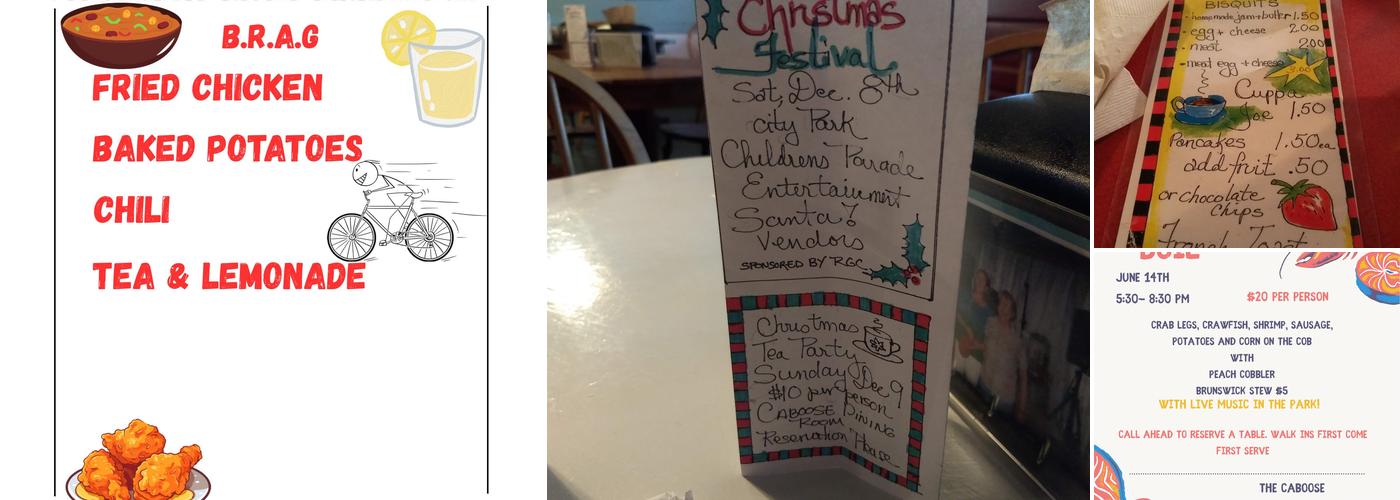 B.R.A.G
FRIED CHICKEN
BAKED POTATOES
CHILI
TEA & LEMONADE
Christmas
Festival
Sat, Dec. 8th
City Park
Childrens Parade
Entertainment
Santa?
Vendors
SPONSORED BY RGC
Christmas
Tea Party
Sunday Dec 9
$10 per person
CABOOSE DINING
ROOM
Reservation
BISQUITS
- homemade jam + butter 1.50
- egg + cheese 2.00
- meat 2.00
- meat egg + cheese 3.00
Cuppa
Joe 1.50
Pancakes 1.50 ea
add fruit .50
or chocolate
Chips
French Toast
BOIL
JUNE 14TH
5:30- 8:30 PM
$20 PER PERSON
CRAB LEGS, CRAWFISH, SHRIMP, SAUSAGE,
POTATOES AND CORN ON THE COB
WITH
PEACH COBBLER
BRUNSWICK STEW $5
WITH LIVE MUSIC IN THE PARK!
CALL AHEAD TO RESERVE A TABLE. WALK INS FIRST COME
FIRST SERVE
THE CABOOSE